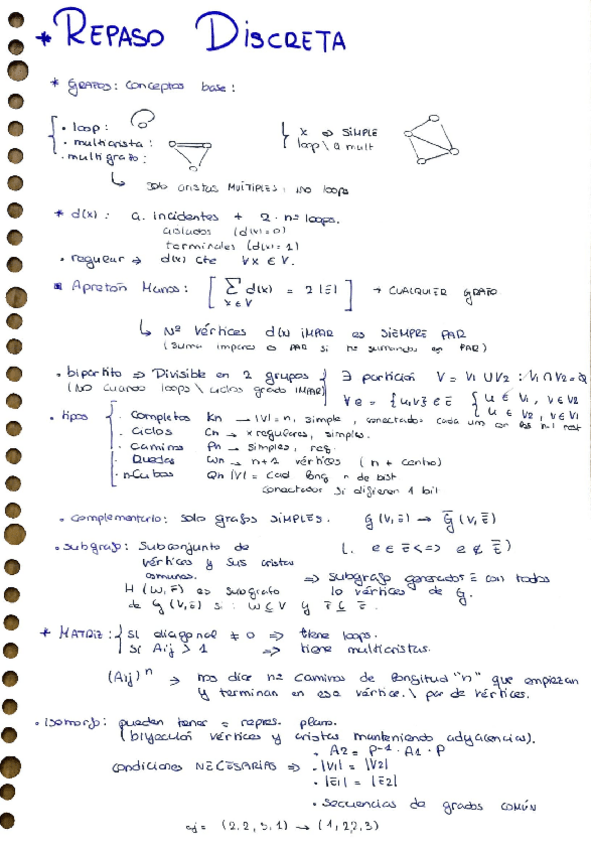 * REPASO DISCRETA
* GRAFOS: conceptos base:
. loop:
. multiarista:
. multigrafo:
x => SIMPLE
loop \ a mult
↳ solo aristas MÚLTIPLES, no loops
* d(x): a. incidentes + 2 · nº loops.
aislados (d(v)=0)
terminales (d(v)=1)
. regular → d(x) cte ∀x ∈ V.
Apretón Manos: [ Σ d(x) = 2|E| ] → CUALQUIER GRAFO
x ∈ V
↳ Nº vértices d(v) IMPAR es SIEMPRE PAR
(suma impares es PAR si nº sumandos es PAR)
. bipartito => Divisible en 2 grupos { ∃ partición V = V1 ∪ V2 : V1 ∩ V2 = Ø
(NO cuando loops \ ciclos grado IMPAR) ∀e = {u,v} ∈ E { u ∈ V1, v ∈ V2
u ∈ V2, v ∈ V1
. tipos
. Completos Kn → |V|=n, simple, conectados cada un con los n-1 rest
. Ciclos Cn → regulares, simples.
. Caminos Pn → simples, reg.
. Ruedas Wn → n+1 vértices (n + centro)
. n-Cubos Qn |V| = cad long n de bist
conectados si difieren 1 bit
. complementario: solo grafos SIMPLES. G(V,E) → G̅(V,E̅)
. subgrafo: Subconjunto de (. e ∈ E <=> e ∉ E̅)
vértices y sus aristas
comunes. => subgrafo generador = con todos
H (W,F) es subgrafo lo vértices de G.
de G(V,E) si: W ⊆ V y F ⊆ E.
* MATRIZ: { SI diagonal ≠ 0 => tiene loops.
SI Aij > 1 => tiene multiaristas.
(Aij)ⁿ → nos dice nº caminos de longitud "n" que empiezan
y terminan en ese vértice \ par de vértices.
. Isomorf: pueden tener = repres. plana.
(biyección vértices y aristas manteniendo adyacencias).
. A2 = P⁻¹ · A1 · P
condiciones NECESARIAS => . |V1| = |V2|
. |E1| = |E2|
. secuencias de grados COMÚN
ej = (2,2,3,1) → (1,2,2,3)